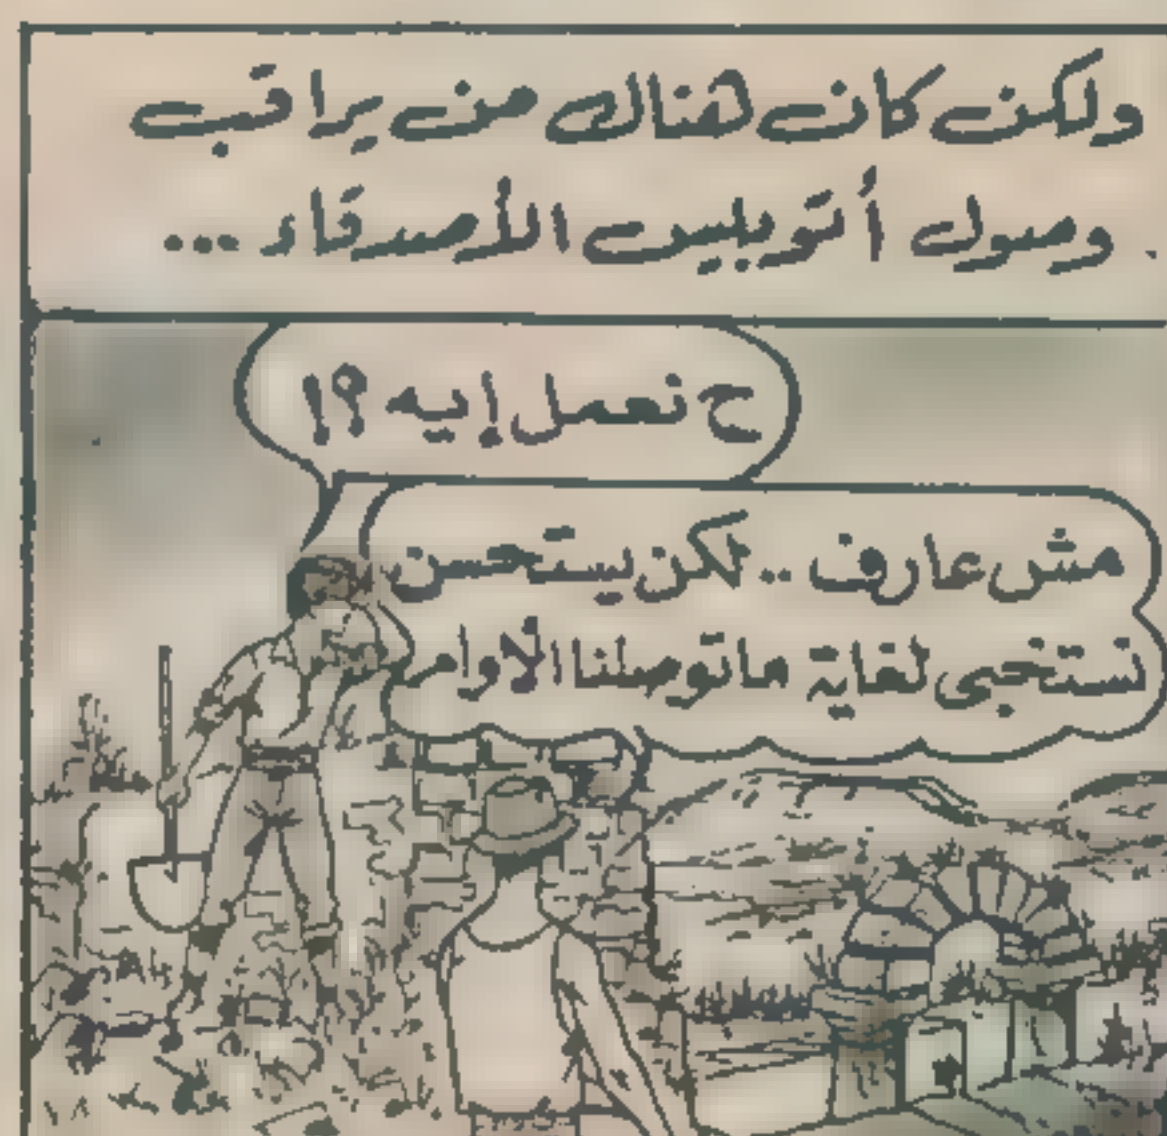 ولكن كان هناك من يراقب
وصول أتوبيس الأصدقاء ...
ح نعمل إيه ؟!
مش عارف .. لكن يستحسن
نستخبى لغاية ما توصلنا الاوامر